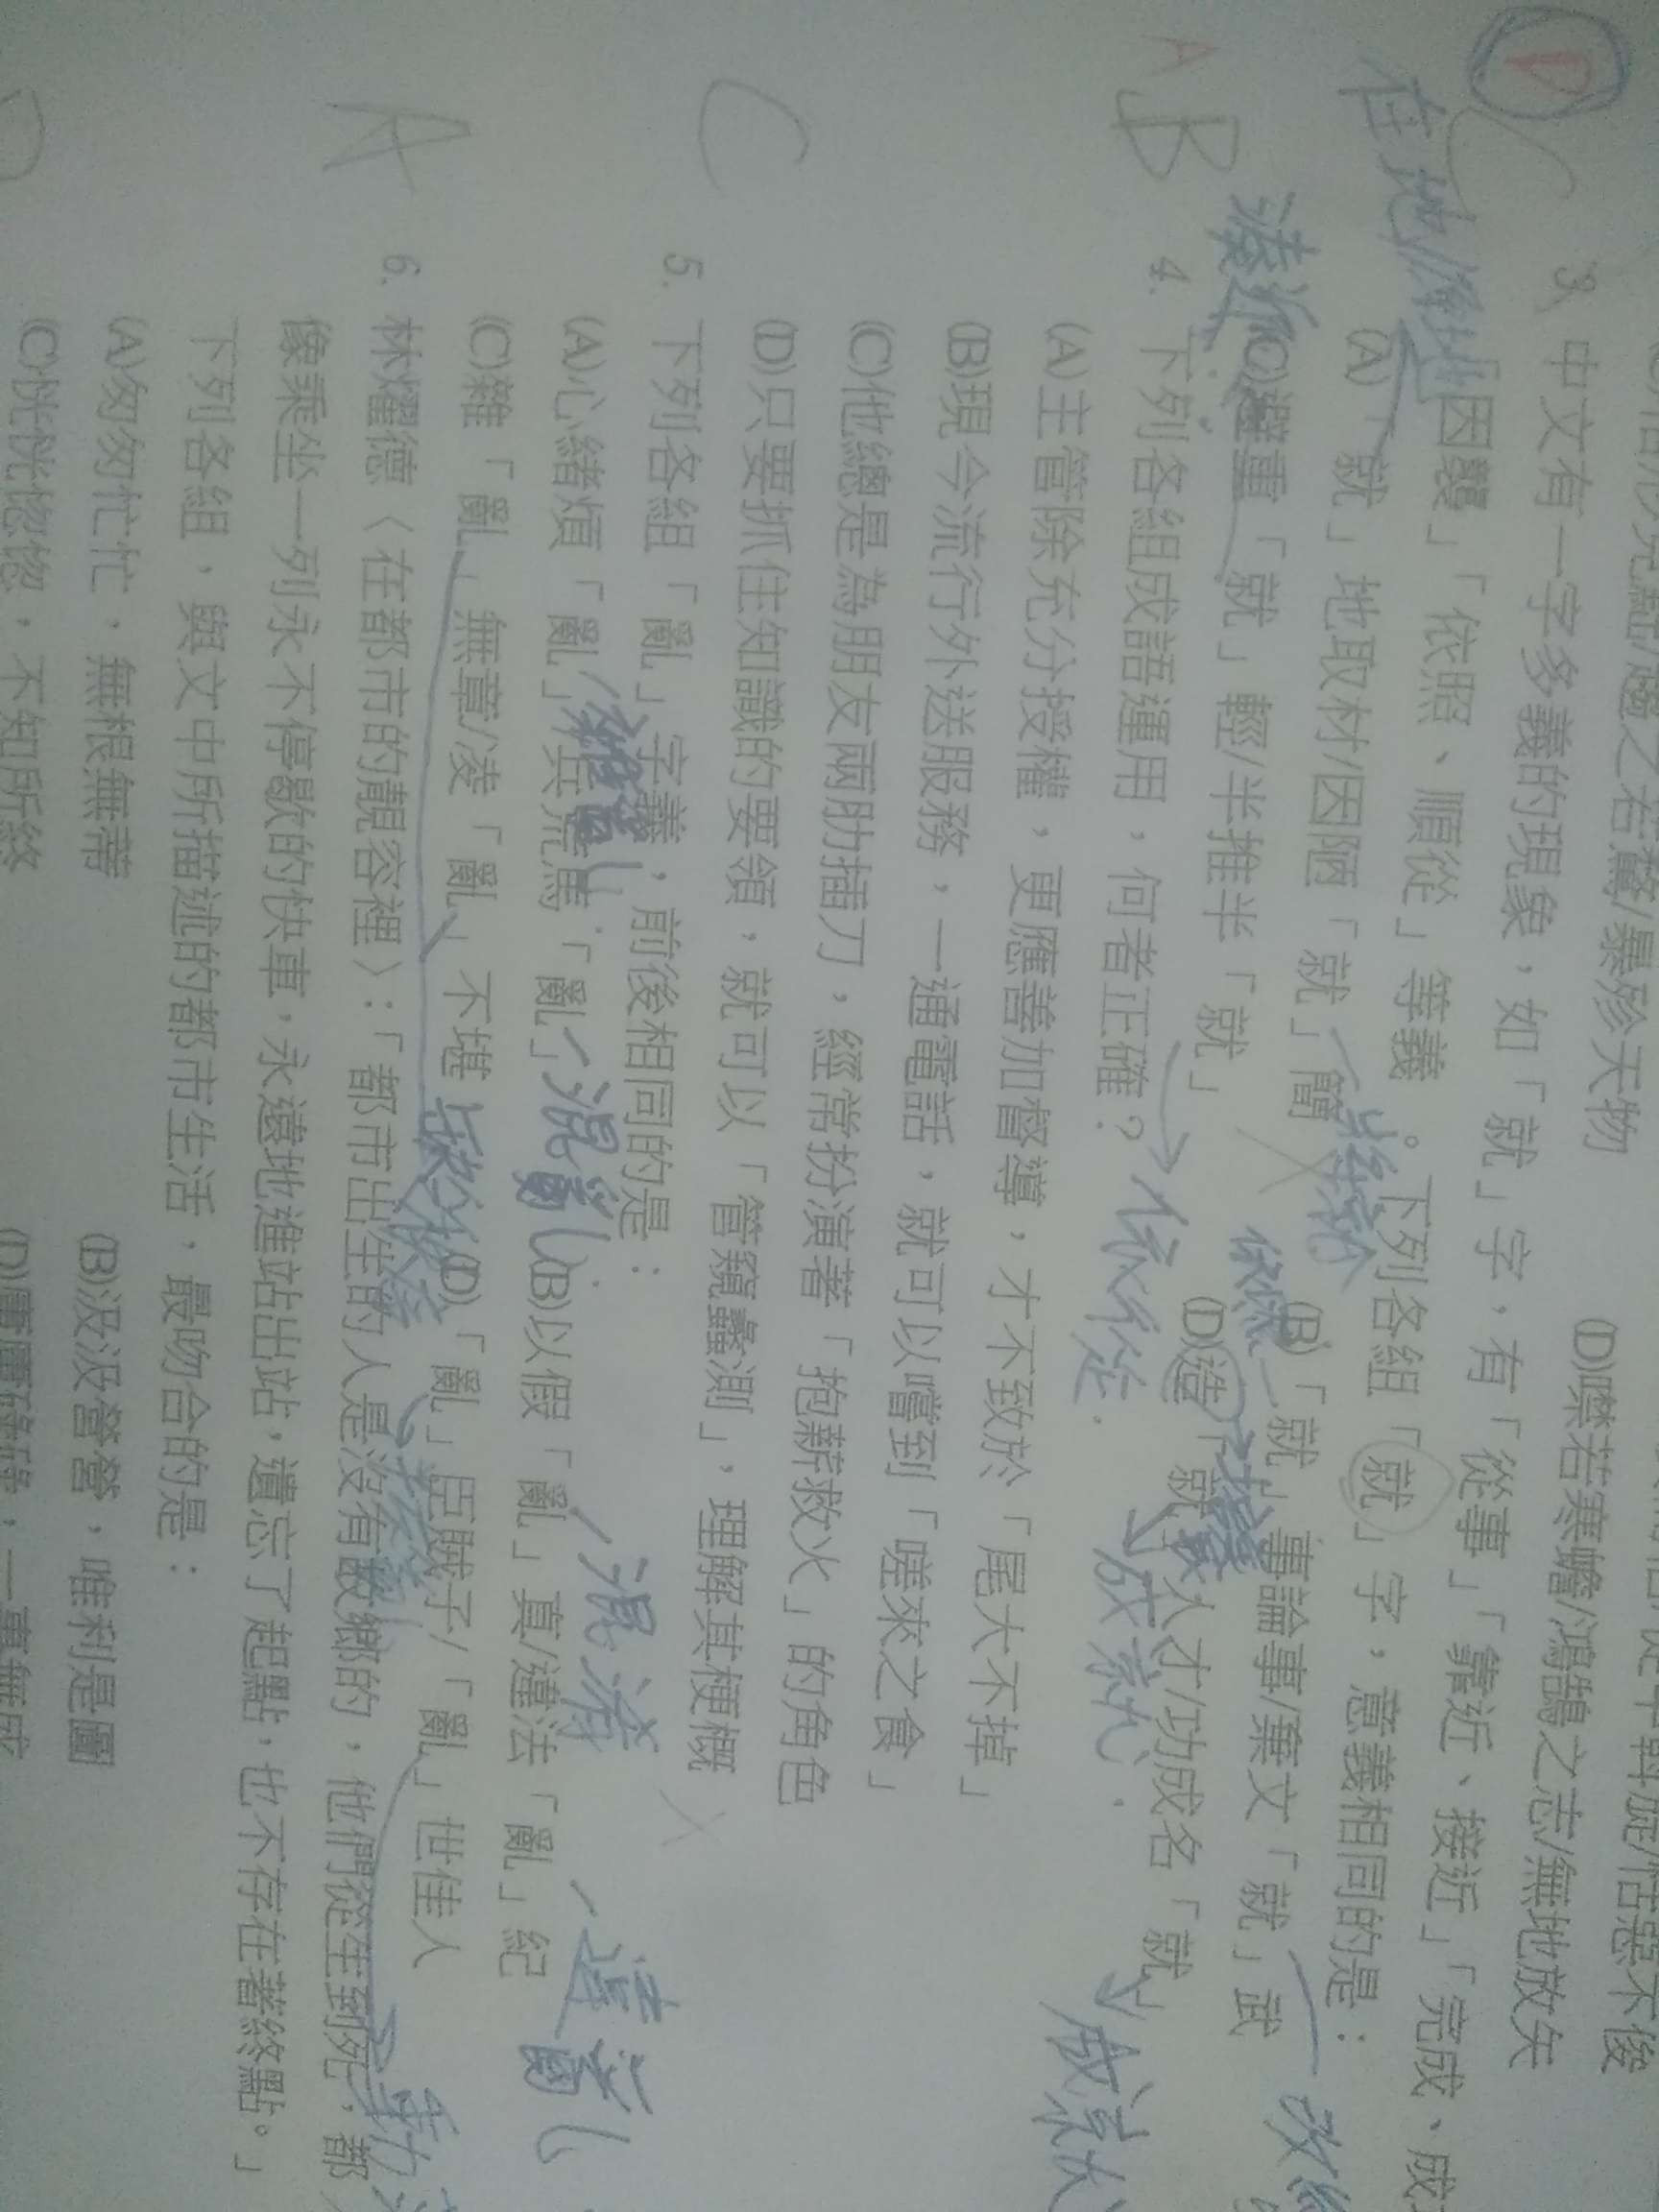 (D)噤若寒蟬/鴻鵠之志/無地放矢
3、中文有一字多義的現象，如「就」字，有「從事」「靠近、接近」「完成、成
因襲」「依照、順從」等義。下列各組「就」字，意義相同的是：
(A)「就」地取材/因陋「就」簡
(B)「就」事論事/棄文「就」武
(C)避重「就」輕/半推半「就」
(D)造「就」人才/功成名「就
4. 下列各組成語運用，何者正確？
(A)主管除充分授權，更應善加督導，才不致於「尾大不掉」
(B)現今流行外送服務，一通電話，就可以嚐到「嗟來之食」
(C)他總是為朋友兩肋插刀，經常扮演著「抱薪救火」的角色
(D)只要抓住知識的要領，就可以「管窺蠡測」，理解其梗概
5. 下列各組「亂」字義，前後相同的是：
(A)心緒煩「亂」/兵荒馬「亂」
(B)以假「亂」真/違法「亂」紀
(C)雜「亂」無章/凌「亂」不堪
(D)「亂」臣賊子/「亂」世佳人
6. 林燿德〈在都市的靚容裡〉：「都市出生的人是沒有故鄉的，他們從生到死，都
像乘坐一列永不停歇的快車，永遠地進站出站，遺忘了起點，也不存在著終點。」
下列各組，與文中所描述的都市生活，最吻合的是：
(A)匆匆忙忙，無根無蒂
(B)汲汲營營，唯利是圖
(C)恍恍惚惚，不知所終
一事無成
在地
湊近
依從
成就
成就
混亂
混淆
違
A
B
C
A
D